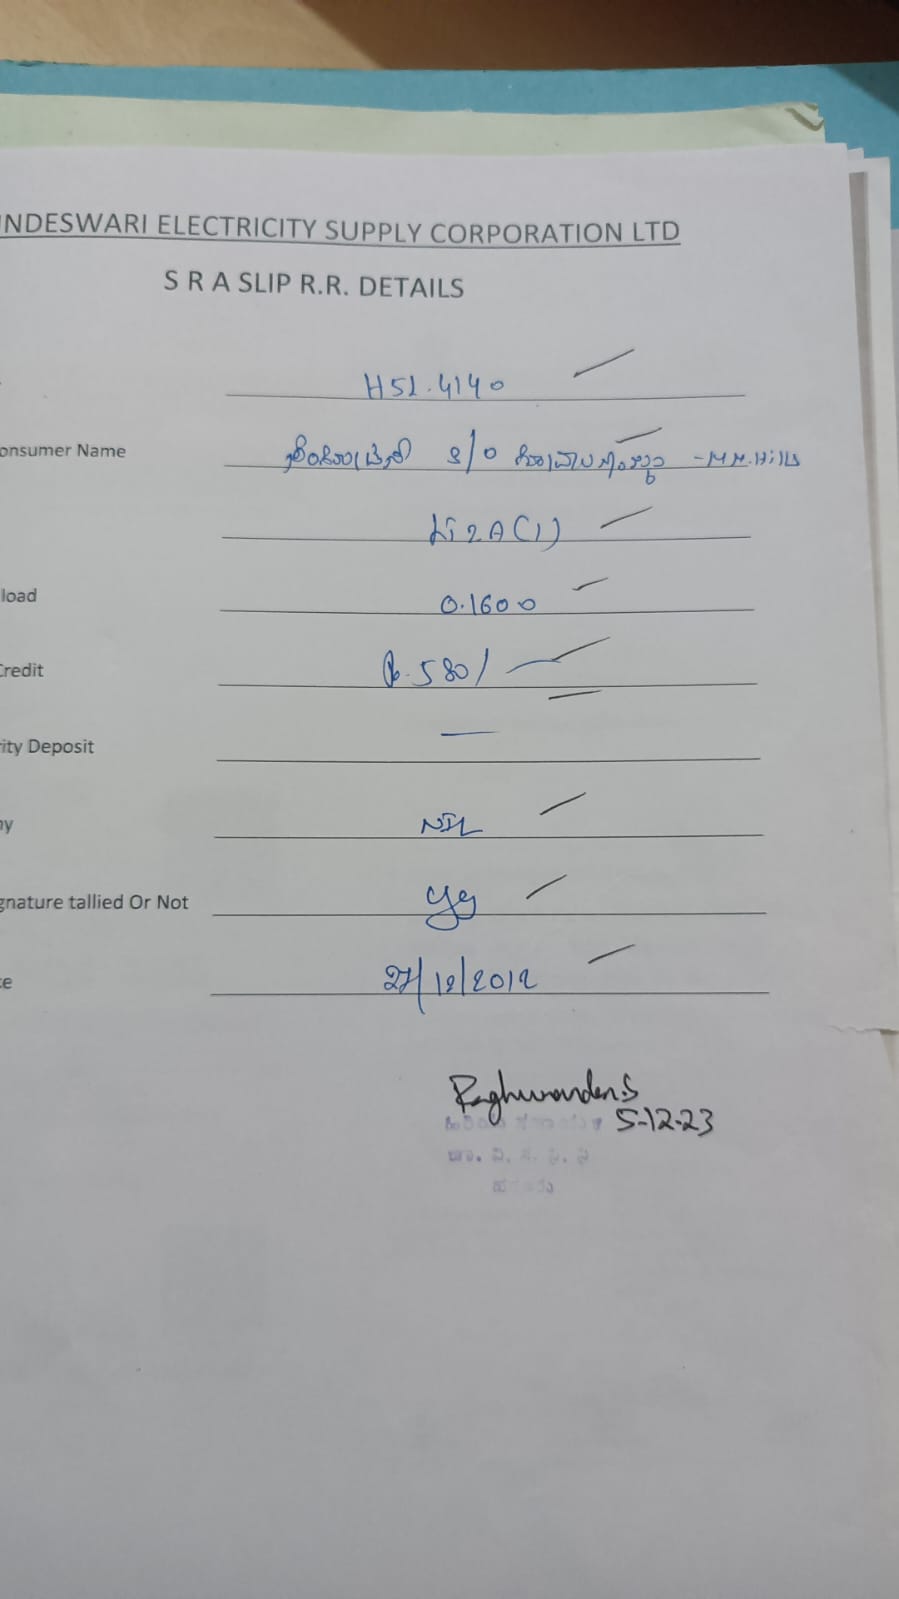 NDESWARI ELECTRICITY SUPPLY CORPORATION LTD
S R A SLIP R.R. DETAILS
HSL.4140
onsumer Name S/o - M.M.Hills
LT2A(1)
load 0.1600
Credit Rs.580/
ity Deposit —
ny NIL
gnature tallied Or Not Yes
e 27/12/2012
Raghunandan.S
5-12-23